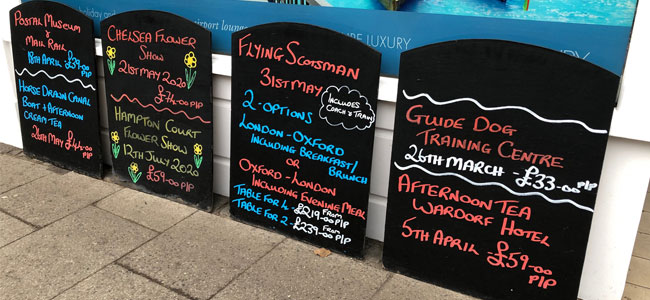 holiday and
airport lounge
LUXURY
POSTAL MUSEUM
&
MAIL RAIL
18TH APRIL £39-00
P|P
HORSE DRAWN CANAL
BOAT + AFTERNOON
CREAM TEA
26TH MAY £44-00
P|P
CHELSEA FLOWER
SHOW
21ST MAY 2020
£74-00 P|P
HAMPTON COURT
FLOWER SHOW
12TH JULY 2020
£59-00 P|P
FLYING SCOTSMAN
31ST MAY
INCLUDES
COACH & TRAVEL
2 - OPTIONS
LONDON - OXFORD
INCLUDING BREAKFAST/
BRUNCH
OR
OXFORD - LONDON
INCLUDING EVENING MEAL
TABLE FOR 4 - £219-00 FROM P|P
TABLE FOR 2 - £239-00 FROM P|P
GUIDE DOG
TRAINING CENTRE
26TH MARCH - £33-00 P|P
AFTERNOON TEA
WARDORF HOTEL
5TH APRIL - £59-00
P|P